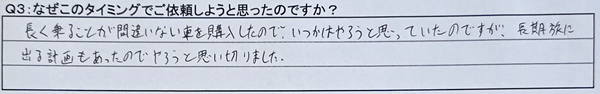 Q3：なぜこのタイミングでご依頼しようと思ったのですか？
長く乗ることが間違いない車を購入したので、いつかはやろうと思っていたのですが、長期旅に
出る計画もあったのでやろうと思い切りました。